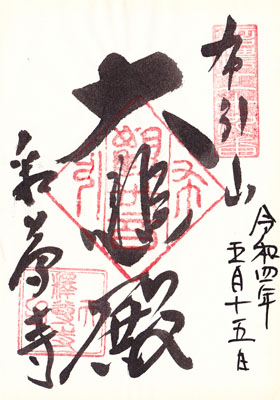 布引山
大悲殿
釈尊寺
令和四年
五月十五日